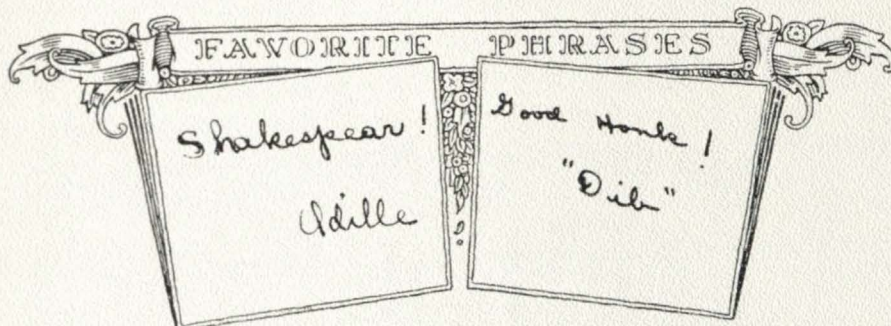 FAVORITE PHRASES
Shakespear!
Odille
Good Honk!
"Dib"